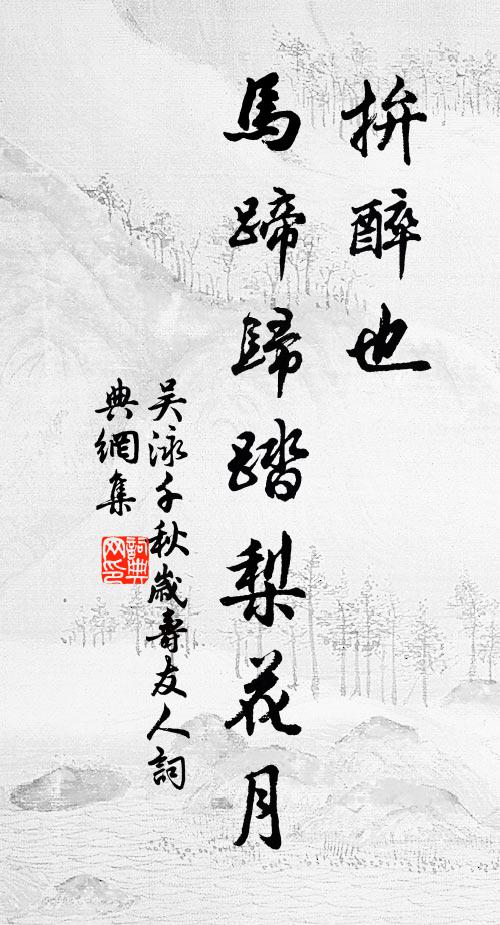 拚醉也
馬蹄歸踏梨花月
吴泳千秋歲壽友人詞
典網集
詞典
网印